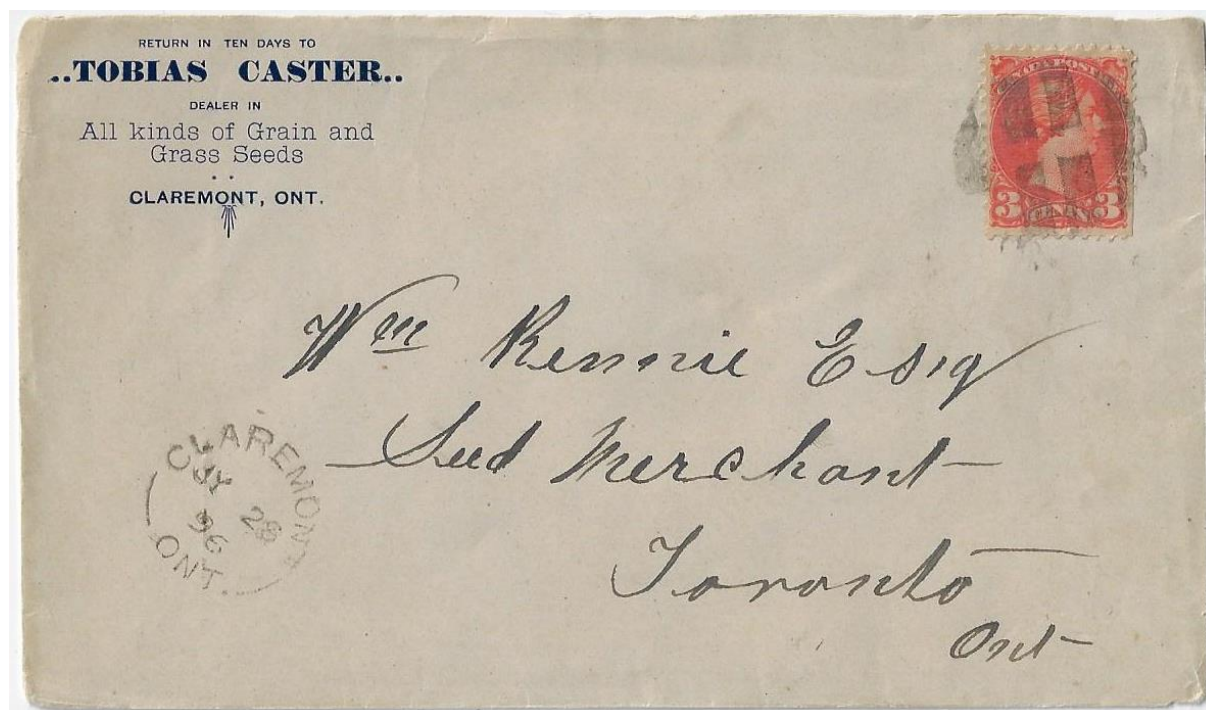 RETURN IN TEN DAYS TO
..TOBIAS CASTER..
DEALER IN
All kinds of Grain and
Grass Seeds
CLAREMONT, ONT.
CANADA POSTAGE
3 CENTS 3
Wm Rennie Esq
Seed Merchant
Toronto
Ont
CLAREMONT
JY 28
96
ONT.